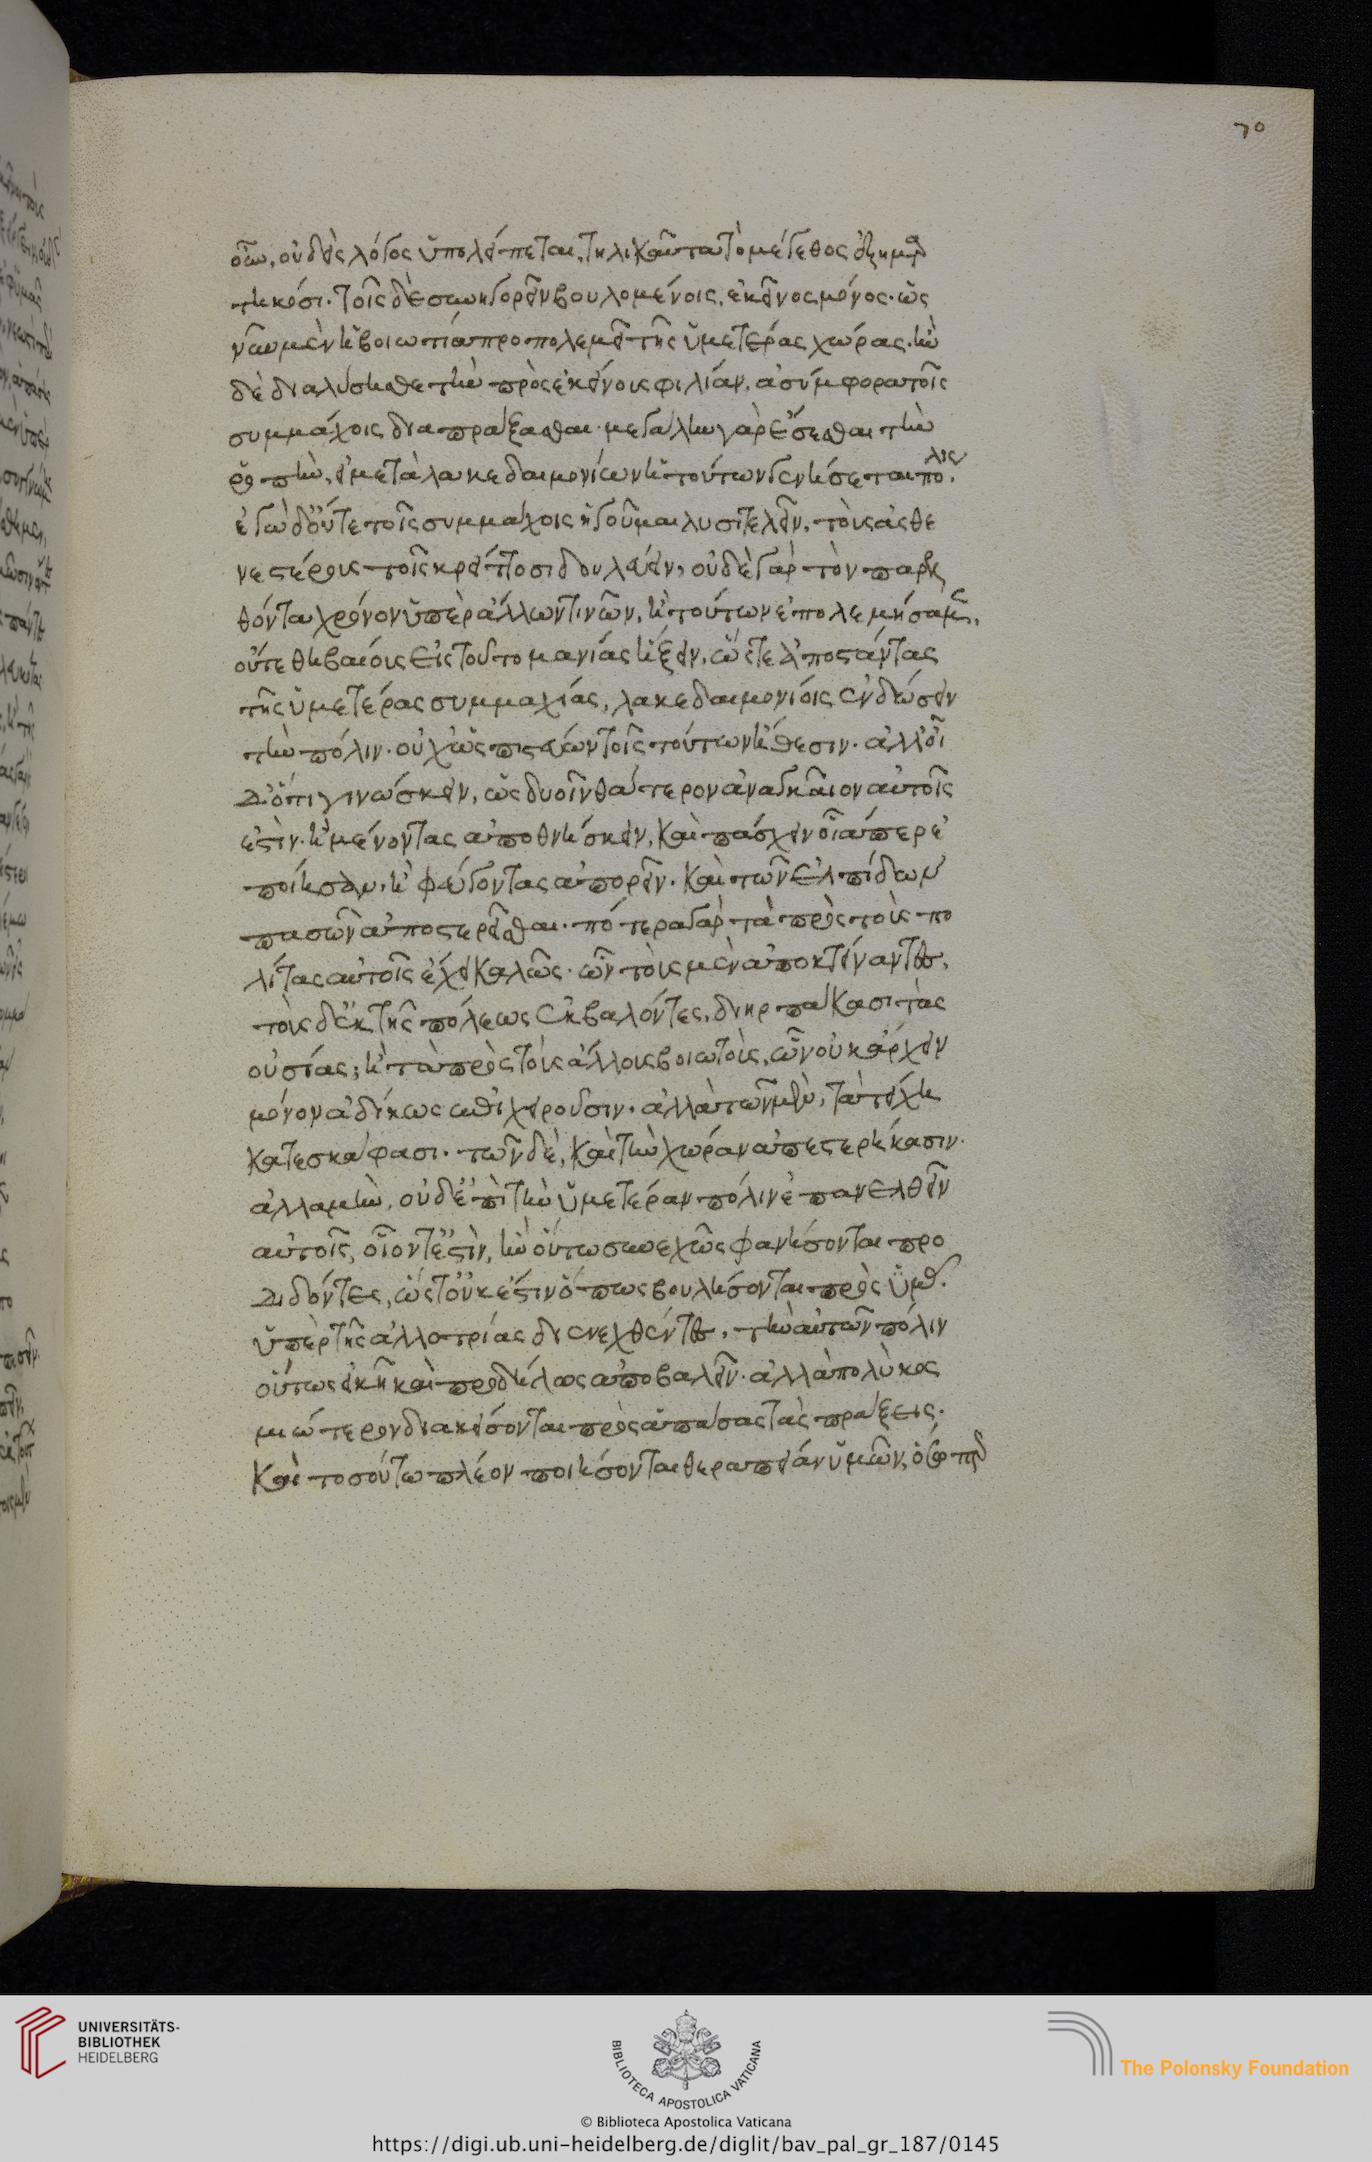 οὖν, οὐδεὶς λόγος ὑπολείπεται, τηλικαῦτα τὸ μέγεθος ἐξημαρ
τηκόσι. τοῖς δὲ συνηγορεῖν βουλομένοις, ἐκεῖνος μόνος. ὡς
νῦν μὲν ἡ βοιωτία προπολεμεῖ τῆς ὑμετέρας χώρας. ἢν
δὲ διαλύσησθε τὴν πρὸς ἐκείνοις φιλίαν, ἀσύμφορα τοῖς
συμμάχοις διαπράξασθαι. μεγάλην γὰρ ἔσεσθαι τὴν
ῥοπὴν, εἰ μετὰ λακεδαιμονίων ἡ τούτων γενήσεται πόλις.
ἐγὼ δ' οὔτε τοῖς συμμάχοις ἡγοῦμαι λυσιτελεῖν, τοὺς ἀσθε
νεστέρους τοῖς κρείττοσι δουλεύειν, οὐδὲ γὰρ τὸν παρελ
θόντα χρόνον ὑπὲρ ἄλλων τινῶν, ἢ τούτων ἐπολεμήσαμεν,
οὔτε θηβαίοις εἰς τοῦτο μανίας ἥξειν, ὥστε ἀποστάντας
τῆς ὑμετέρας συμμαχίας, λακεδαιμονίοις ἐνδώσειν
τὴν πόλιν. οὐχ ὡς πιστεύων τοῖς τούτων ἤθεσιν. ἀλλ' οἶ
δ' ὅτι γινώσκειν, ὡς δυοῖν θάτερον ἀναγκαῖον αὐτοῖς
ἐστὶν. ἢ μένοντας ἀποθνήσκειν, καὶ πάσχειν οἷάπερ ἐ
ποίησαν, ἢ φεύγοντας ἀπορεῖν. καὶ τῶν ἐλπίδων
πασῶν ἀποστερεῖσθαι. πότερα γὰρ τὰ πρὸς τοὺς πο
λίτας αὐτοῖς ἔχει καλῶς. ὧν τοὺς μὲν ἀποκτείναντες,
τοὺς δ' ἐκ τῆς πόλεως ἐκβαλόντες, διηρπάκασι τὰς
οὐσίας; ἢ τὰ πρὸς τοὺς ἄλλους βοιωτοὺς, ὧν οὐκ ἄρχειν
μόνον ἀδίκως ἐπιχειροῦσιν. ἀλλὰ τῶν μὲν, τὰ τείχη
κατεσκάφασι. τῶν δὲ, καὶ τὴν χώραν ἀπεστερήκασιν.
ἀλλὰ μὴν, οὐδ' ἐπὶ τὴν ὑμετέραν πόλιν ἐπανελθεῖν
αὐτοῖς, οἷόντ' ἐστὶν, ἣν οὕτω συνεχῶς φανήσονται προ
διδόντες, ὥστ' οὐκ ἔστιν ὅπως βουλήσονται πρὸς ὑμᾶς
ὑπὲρ τῆς ἀλλοτρίας διενεχθέντες, τὴν αὑτῶν πόλιν
οὕτως εἰκῆ καὶ προδήλως ἀποβαλεῖν. ἀλλὰ πολὺ κοσ
μιώτερον διακείσονται πρὸς ἁπάσας τὰς πράξεις.
καὶ τοσούτω πλέον ποιήσονται θεραπείαν ὑμῶν, ὅσω περ
70
UNIVERSITÄTS-
BIBLIOTHEK
HEIDELBERG
BIBLIOTECA APOSTOLICA VATICANA
© Biblioteca Apostolica Vaticana
The Polonsky Foundation
https://digi.ub.uni-heidelberg.de/diglit/bav_pal_gr_187/0145